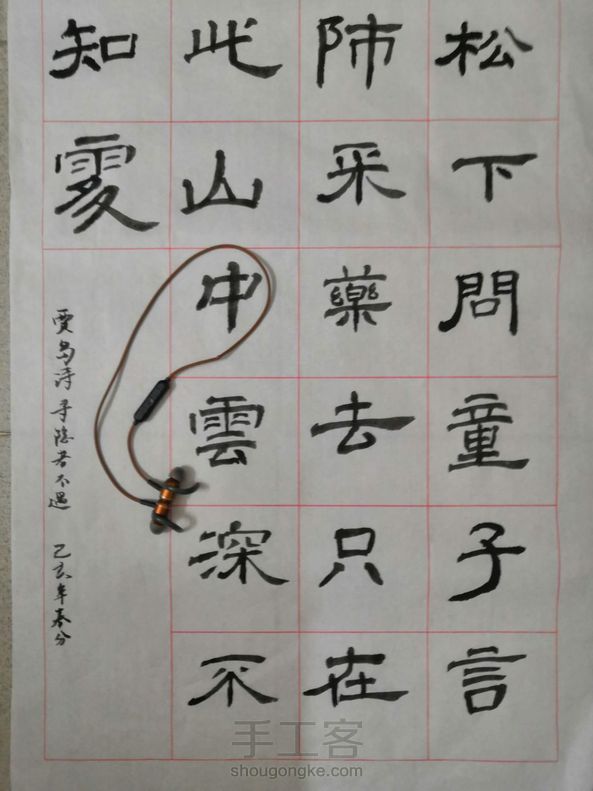 松下問童子言
師采藥去只在
此山中雲深不
知處
賈島詩尋隐者不遇 己亥年春分
手工客
shougongke.com